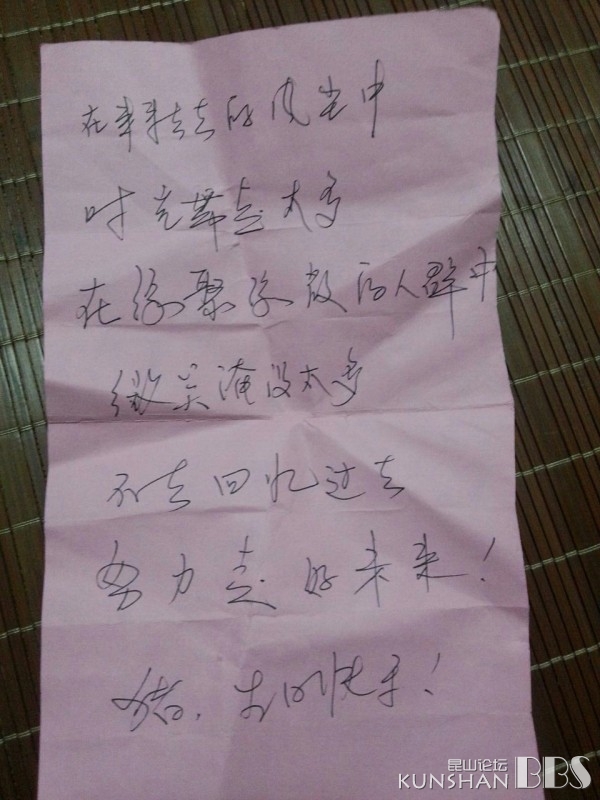 在来来去去的风尘中
时光带走太多
在缘聚缘散的人群中
微笑淹没太多
不去回忆过去
努力走好未来！
猪，生日快乐！
昆山论坛
KUNSHAN BBS